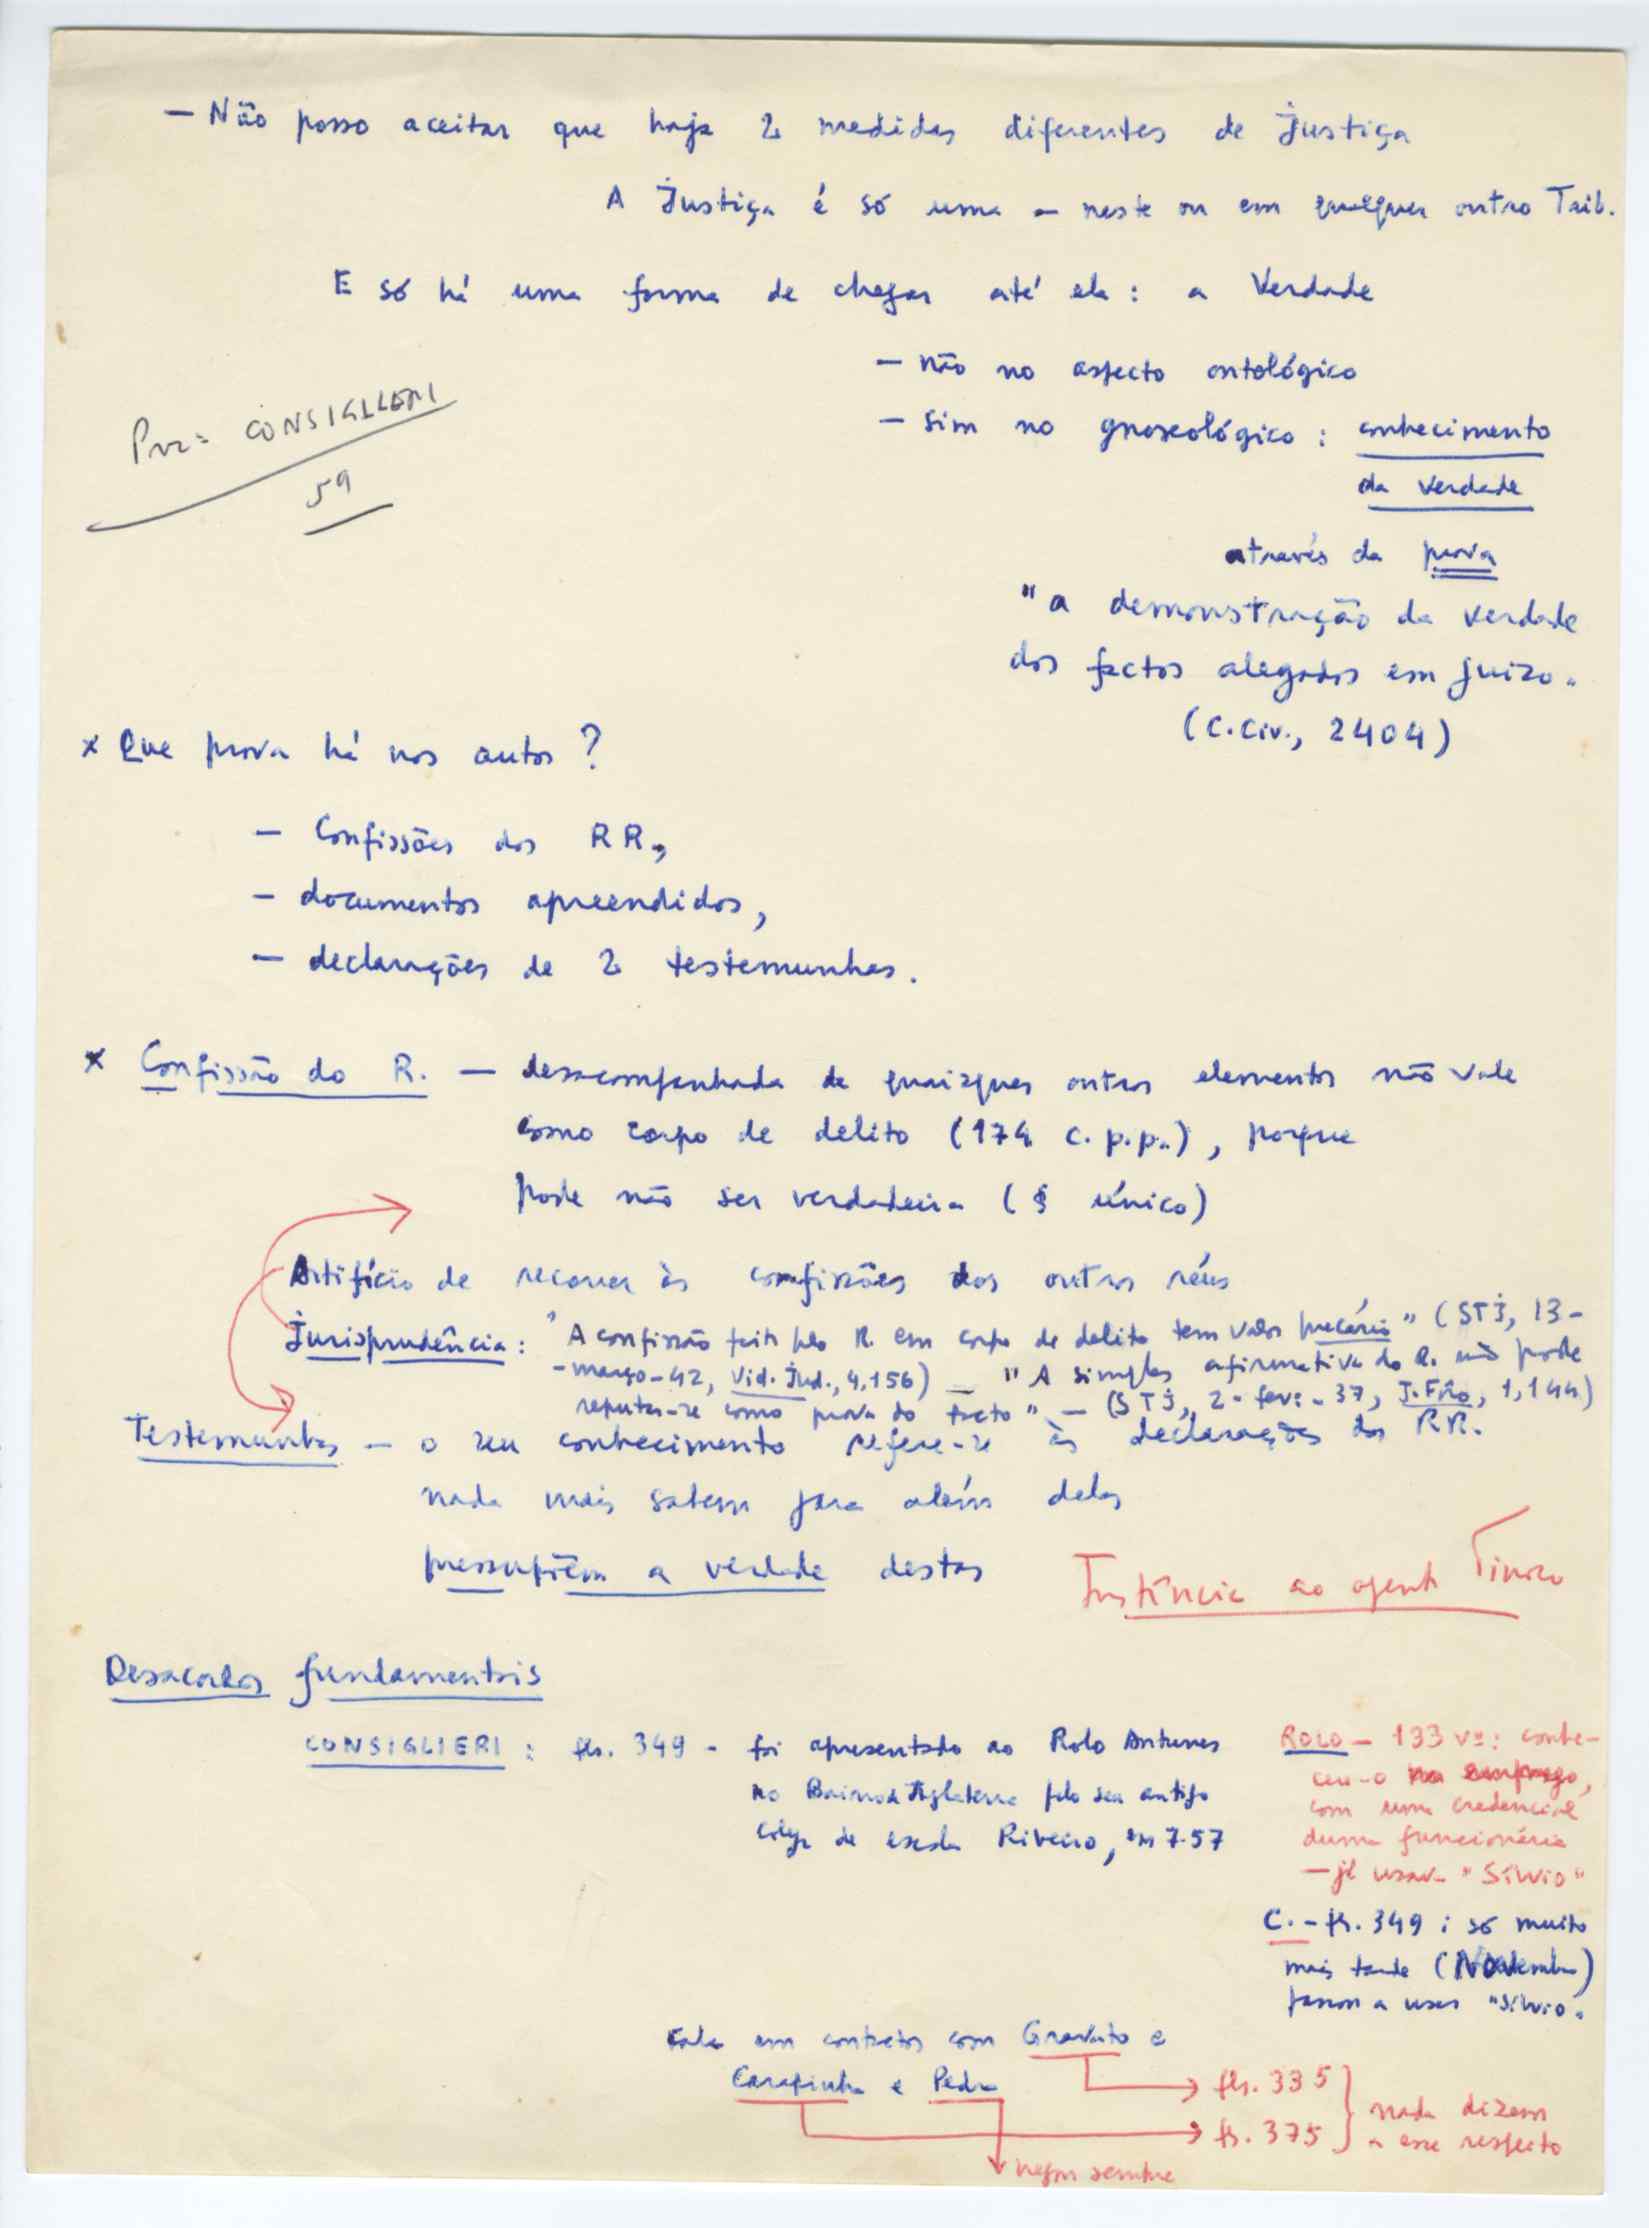 — Não posso aceitar que haja 2 medidas diferentes de Justiça
A Justiça é só uma — neste ou em qualquer outro Trib.
E só há uma forma de chegar até ela: a Verdade
— não no aspecto ontológico
— sim no gnoseológico: conhecimento
da verdade
através da prova
"a demonstração da verdade
dos factos alegados em juizo"
(C.Civ., 2404)
CONSIGLIERI
59
x Que prova há nos autos?
— Confissões dos RR.,
— documentos apreendidos,
— declarações de 2 testemunhas.
x Confissão do R. — desacompanhada de quaisquer outros elementos não vale
como corpo de delito (174 c.p.p.), porque
pode não ser verdadeira (§ único)
Artifício de recorrer às confissões dos outros réus
Jurisprudência: "A confissão feita pelo R. em corpo de delito tem valor precário" (STJ, 13-
-março-42, Vid. Jud., 4,156) — "A simples afirmativa do R. não pode
reputar-se como prova do facto" — (STJ, 2-fev.-37, J. Fôro, 1,144)
Testemunhas — o seu conhecimento refere-se às declarações dos RR.
nada mais sabem para além delas
pressupõem a verdade destas
Instância ao agente Tinoco
Desacordos fundamentais
CONSIGLIERI: fls. 349 - foi apresentado ao Rolo Antunes
no Bairro Inglaterra pelo seu antigo
colega de escola Ribeiro, em 7-57
ROLO — 133 vº: conhe-
ceu-o no emprego,
com uma credencial
duma funcionária
— já usava "Sílvio"
C. - fls. 349: só muito
mais tarde (Novembro)
passou a usar "Sílvio".
Fala em contactos com Gravato e
Carapinha e Pedro
fls. 335
fls. 375
nada dizem
a esse respeito
negou sempre